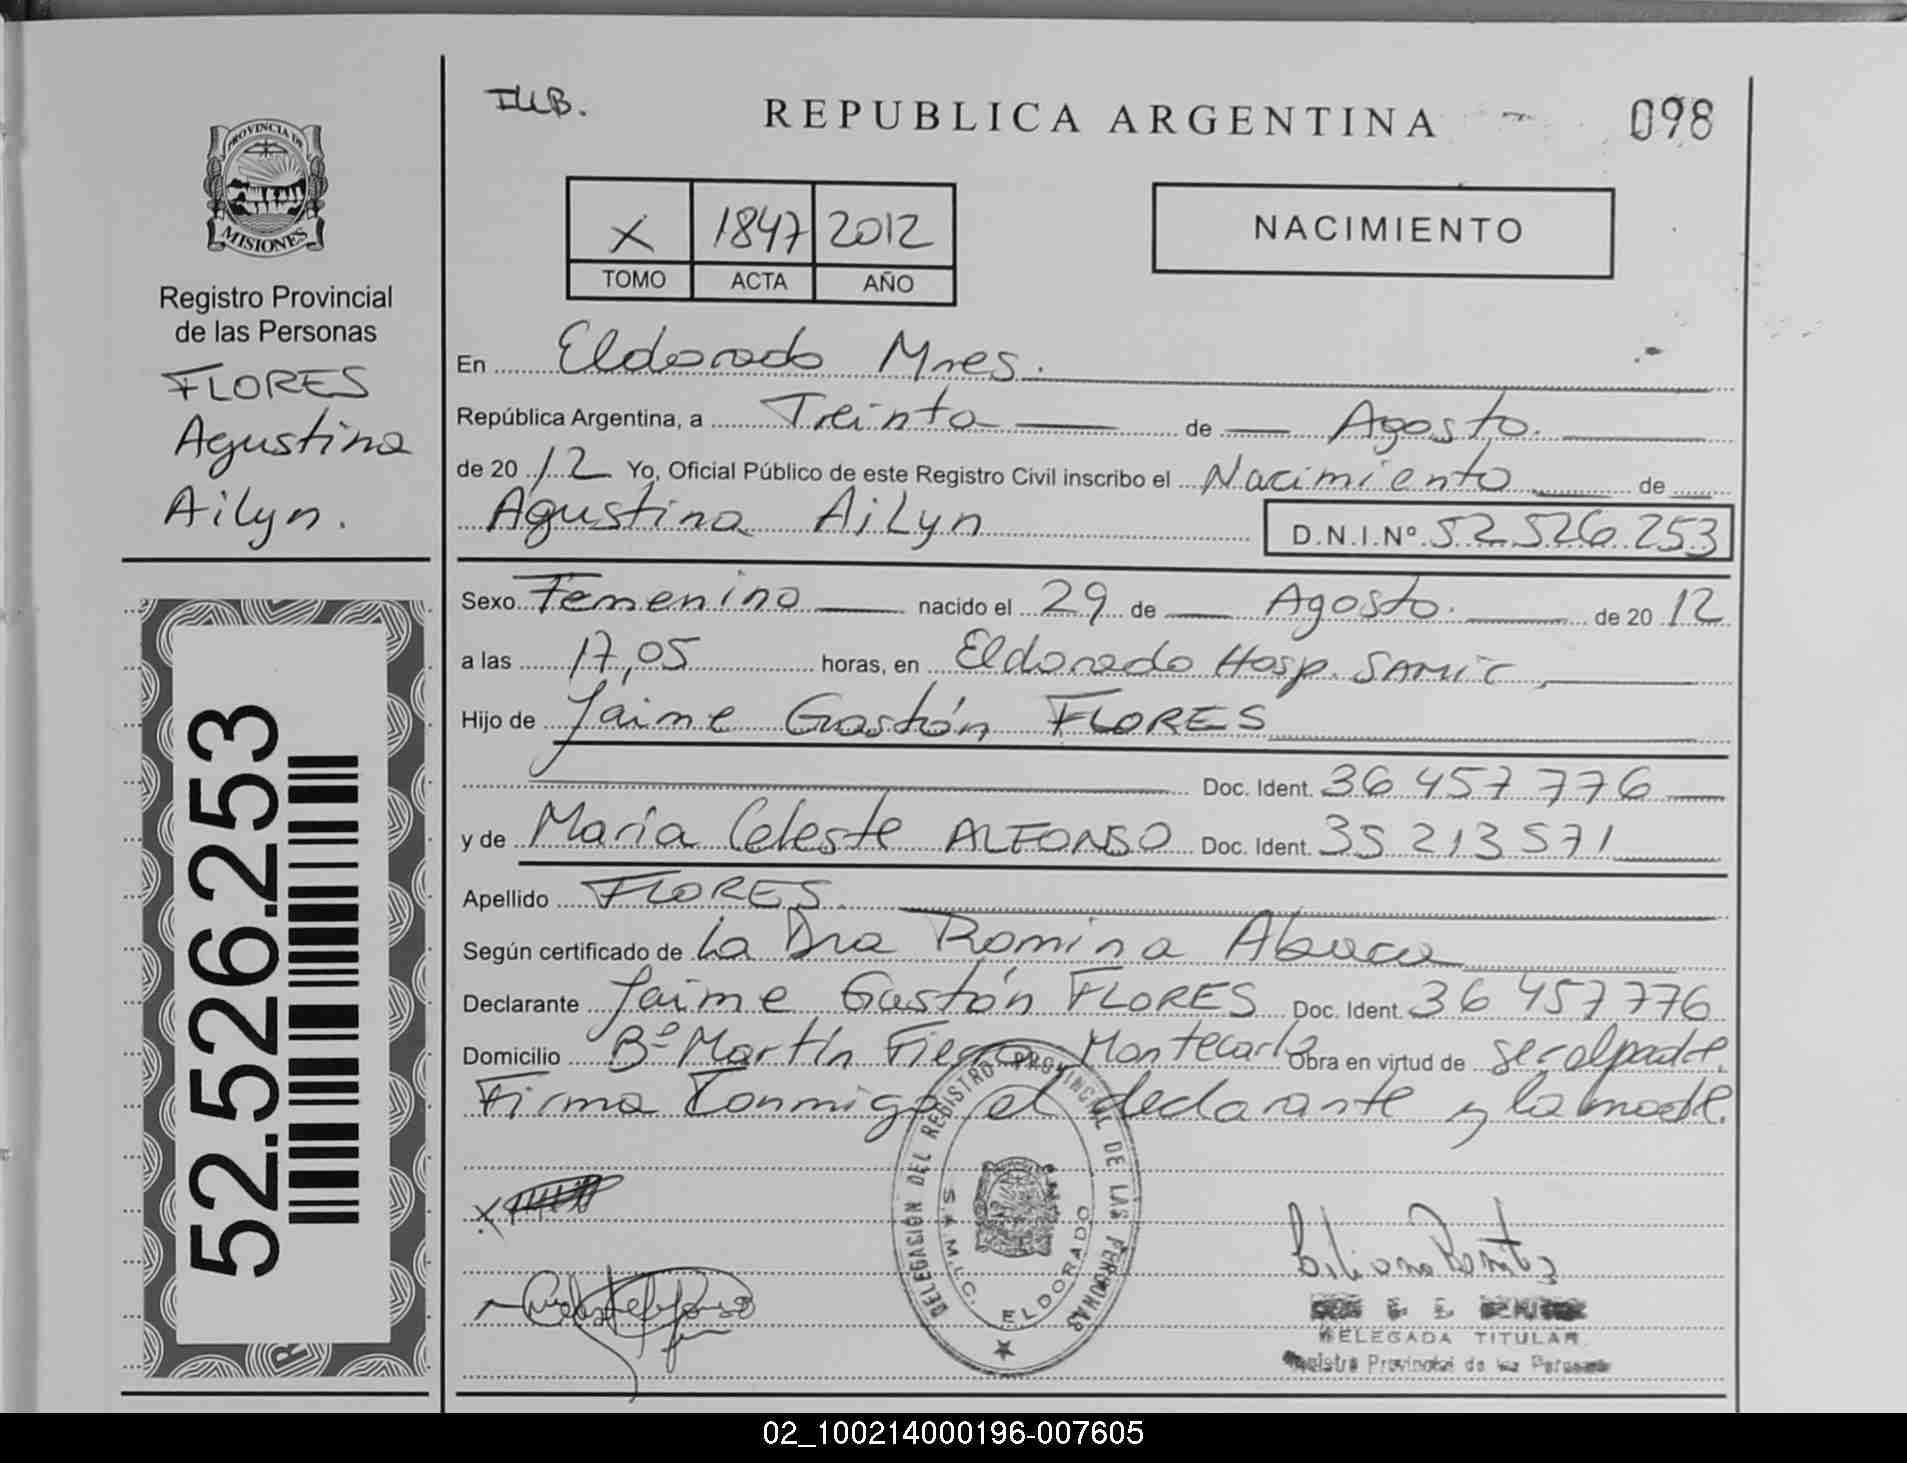 I.U.B.
REPUBLICA ARGENTINA
098
PROVINCIA DE
MISIONES
Registro Provincial
de las Personas
FLORES
Agustina
Ailyn.
X 1847 2012
TOMO ACTA AÑO
NACIMIENTO
En Eldorado Mnes.
República Argentina, a Treinta de Agosto.
de 20 12 Yo, Oficial Público de este Registro Civil inscribo el Nacimiento de
Agustina AiLyn D.N.I.Nº 52.526.253
Sexo Femenino nacido el 29 de Agosto. de 20 12
a las 17,05 horas, en Eldorado Hosp. SAMIC
Hijo de Jaime Gastón FLORES
Doc. Ident. 36 457 776
y de Maria Celeste ALFONSO Doc. Ident. 35 213 571
Apellido FLORES.
Según certificado de la Dra Romina
Declarante Jaime Gastón FLORES Doc. Ident. 36 457 776
Domicilio Bº Martín Fierro Montecarlo Obra en virtud de ser el padre.
Firma Conmigo el declarante y la madre.
52.526.253
DELEGACIÓN DEL REGISTRO PROVINCIAL DE LAS PERSONAS
S.A.M.I.C. ELDORADO
DELEGADA TITULAR
Registro Provincial de las Personas
02_100214000196-007605